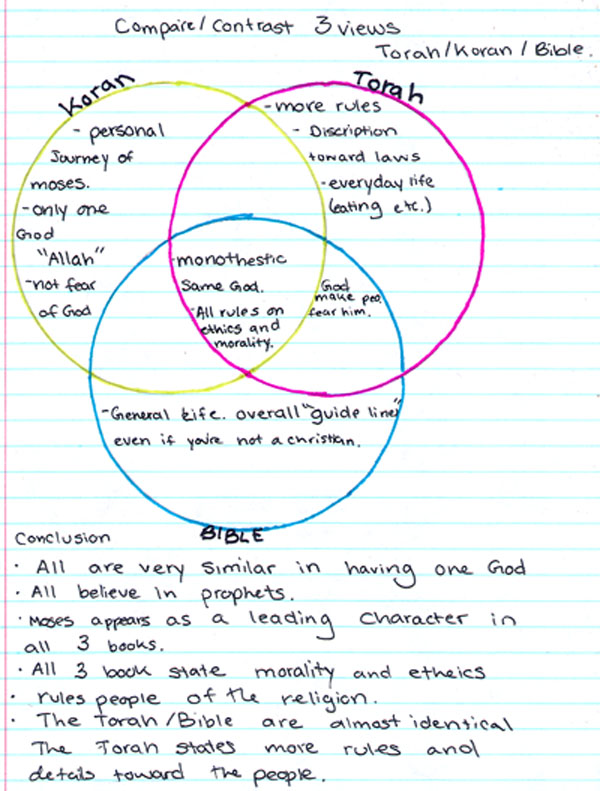 Compare/Contrast 3 views
Torah/Koran/Bible.
Koran
- personal
Journey of
moses.
-only one
God
"Allah"
-not fear
of God
Torah
-more rules
- Discription
toward laws
-everyday life
(eating etc.)
-monothestic
Same God.
-All rules on
ethics and
morality.
God
make peo.
fear him.
-General Life. overall "guide line"
even if you're not a christian.
BIBLE
Conclusion
· All are very similar in having one God
· All believe in prophets.
· Moses appears as a leading character in
all 3 books.
· All 3 book state morality and etheics
· rules people of the religion.
· The Torah/Bible are almost identical
The Torah states more rules and
details toward the people.